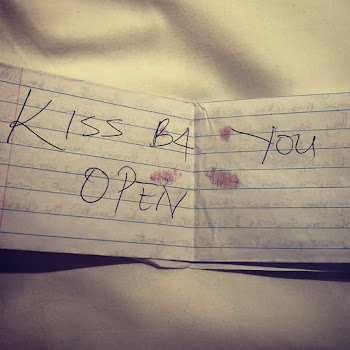 KISS B4 YOU
OPEN